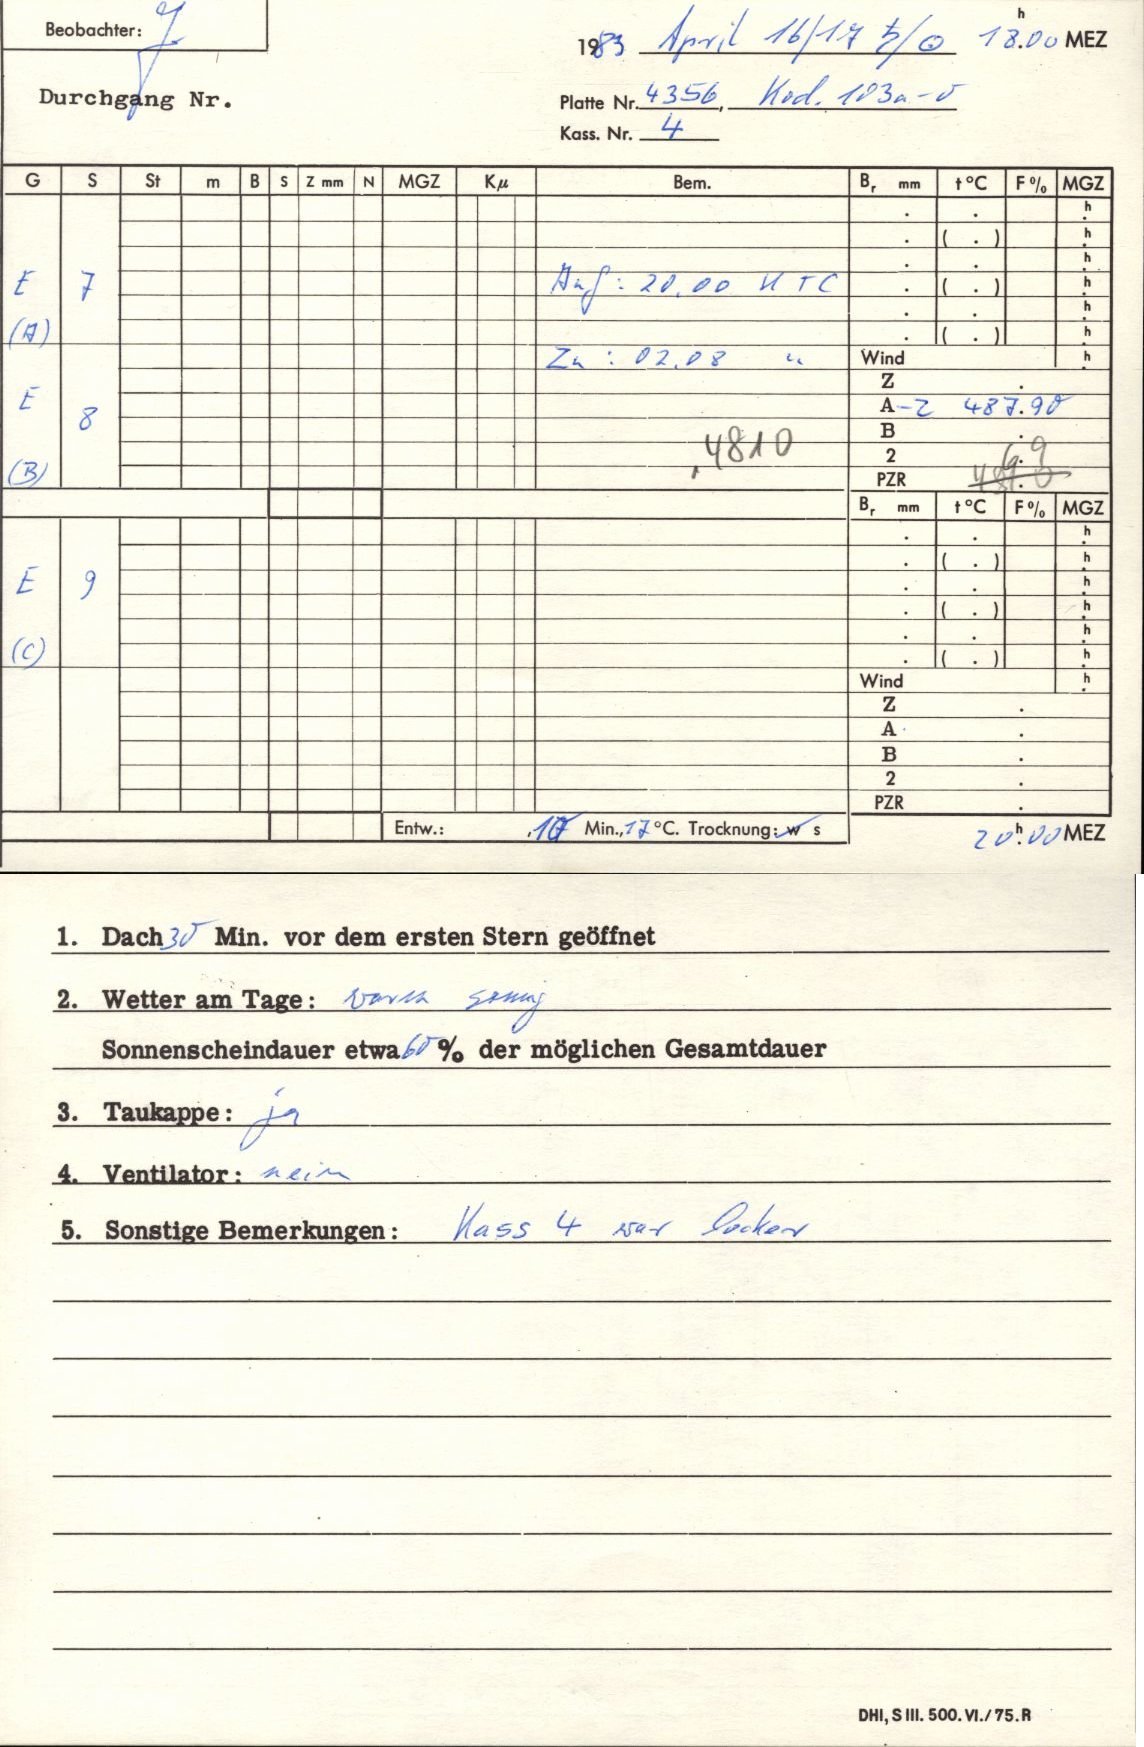 Beobachter: J
1983 April 16/17 ♄/☉ 18h.00 MEZ
Durchgang Nr.
Platte Nr. 4356, Kod. 103a-0
Kass. Nr. 4
G S St m B S Z mm N MGZ Kμ Bem. Br mm t °C F % MGZ
. . h
. ( . ) h
. . h
E 7 Anf: 20.00 UTC . ( . ) h
. . h
(A) . ( . ) h
Zu : 02.08 " Wind h
Z .
E A-Z 487.90
8 B .
.4810 2 6.9
(B) PZR
Br mm t °C F % MGZ
. . h
. ( . ) h
E 9 . . h
. ( . ) h
. . h
(C) . ( . ) h
Wind h
Z .
A .
B .
2 .
PZR .
Entw.: Min., 17 °C. Trocknung: w s
20h.00 MEZ
1. Dach 30 Min. vor dem ersten Stern geöffnet
2. Wetter am Tage: warm sonnig
Sonnenscheindauer etwa 60 % der möglichen Gesamtdauer
3. Taukappe: ja
4. Ventilator: nein
5. Sonstige Bemerkungen: Kass 4 war locker
DHI, S III. 500. VI./75. R